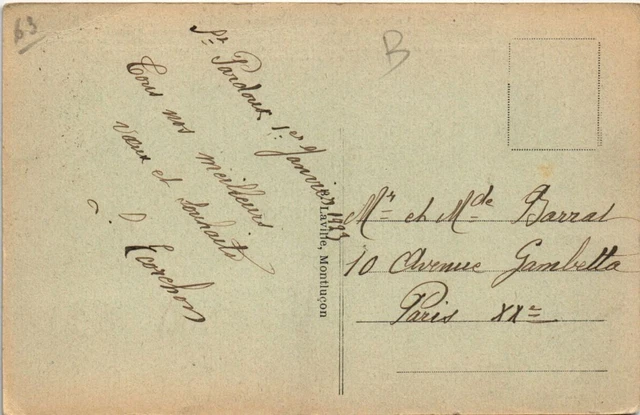 63
B
St Pardoux 1er Janvier 1923
Tous nos meilleurs
vœux et souhaits
Ecorchon
Laville, Montluçon
Mr et Mde Barrat
10 Avenue Gambetta
Paris XXe